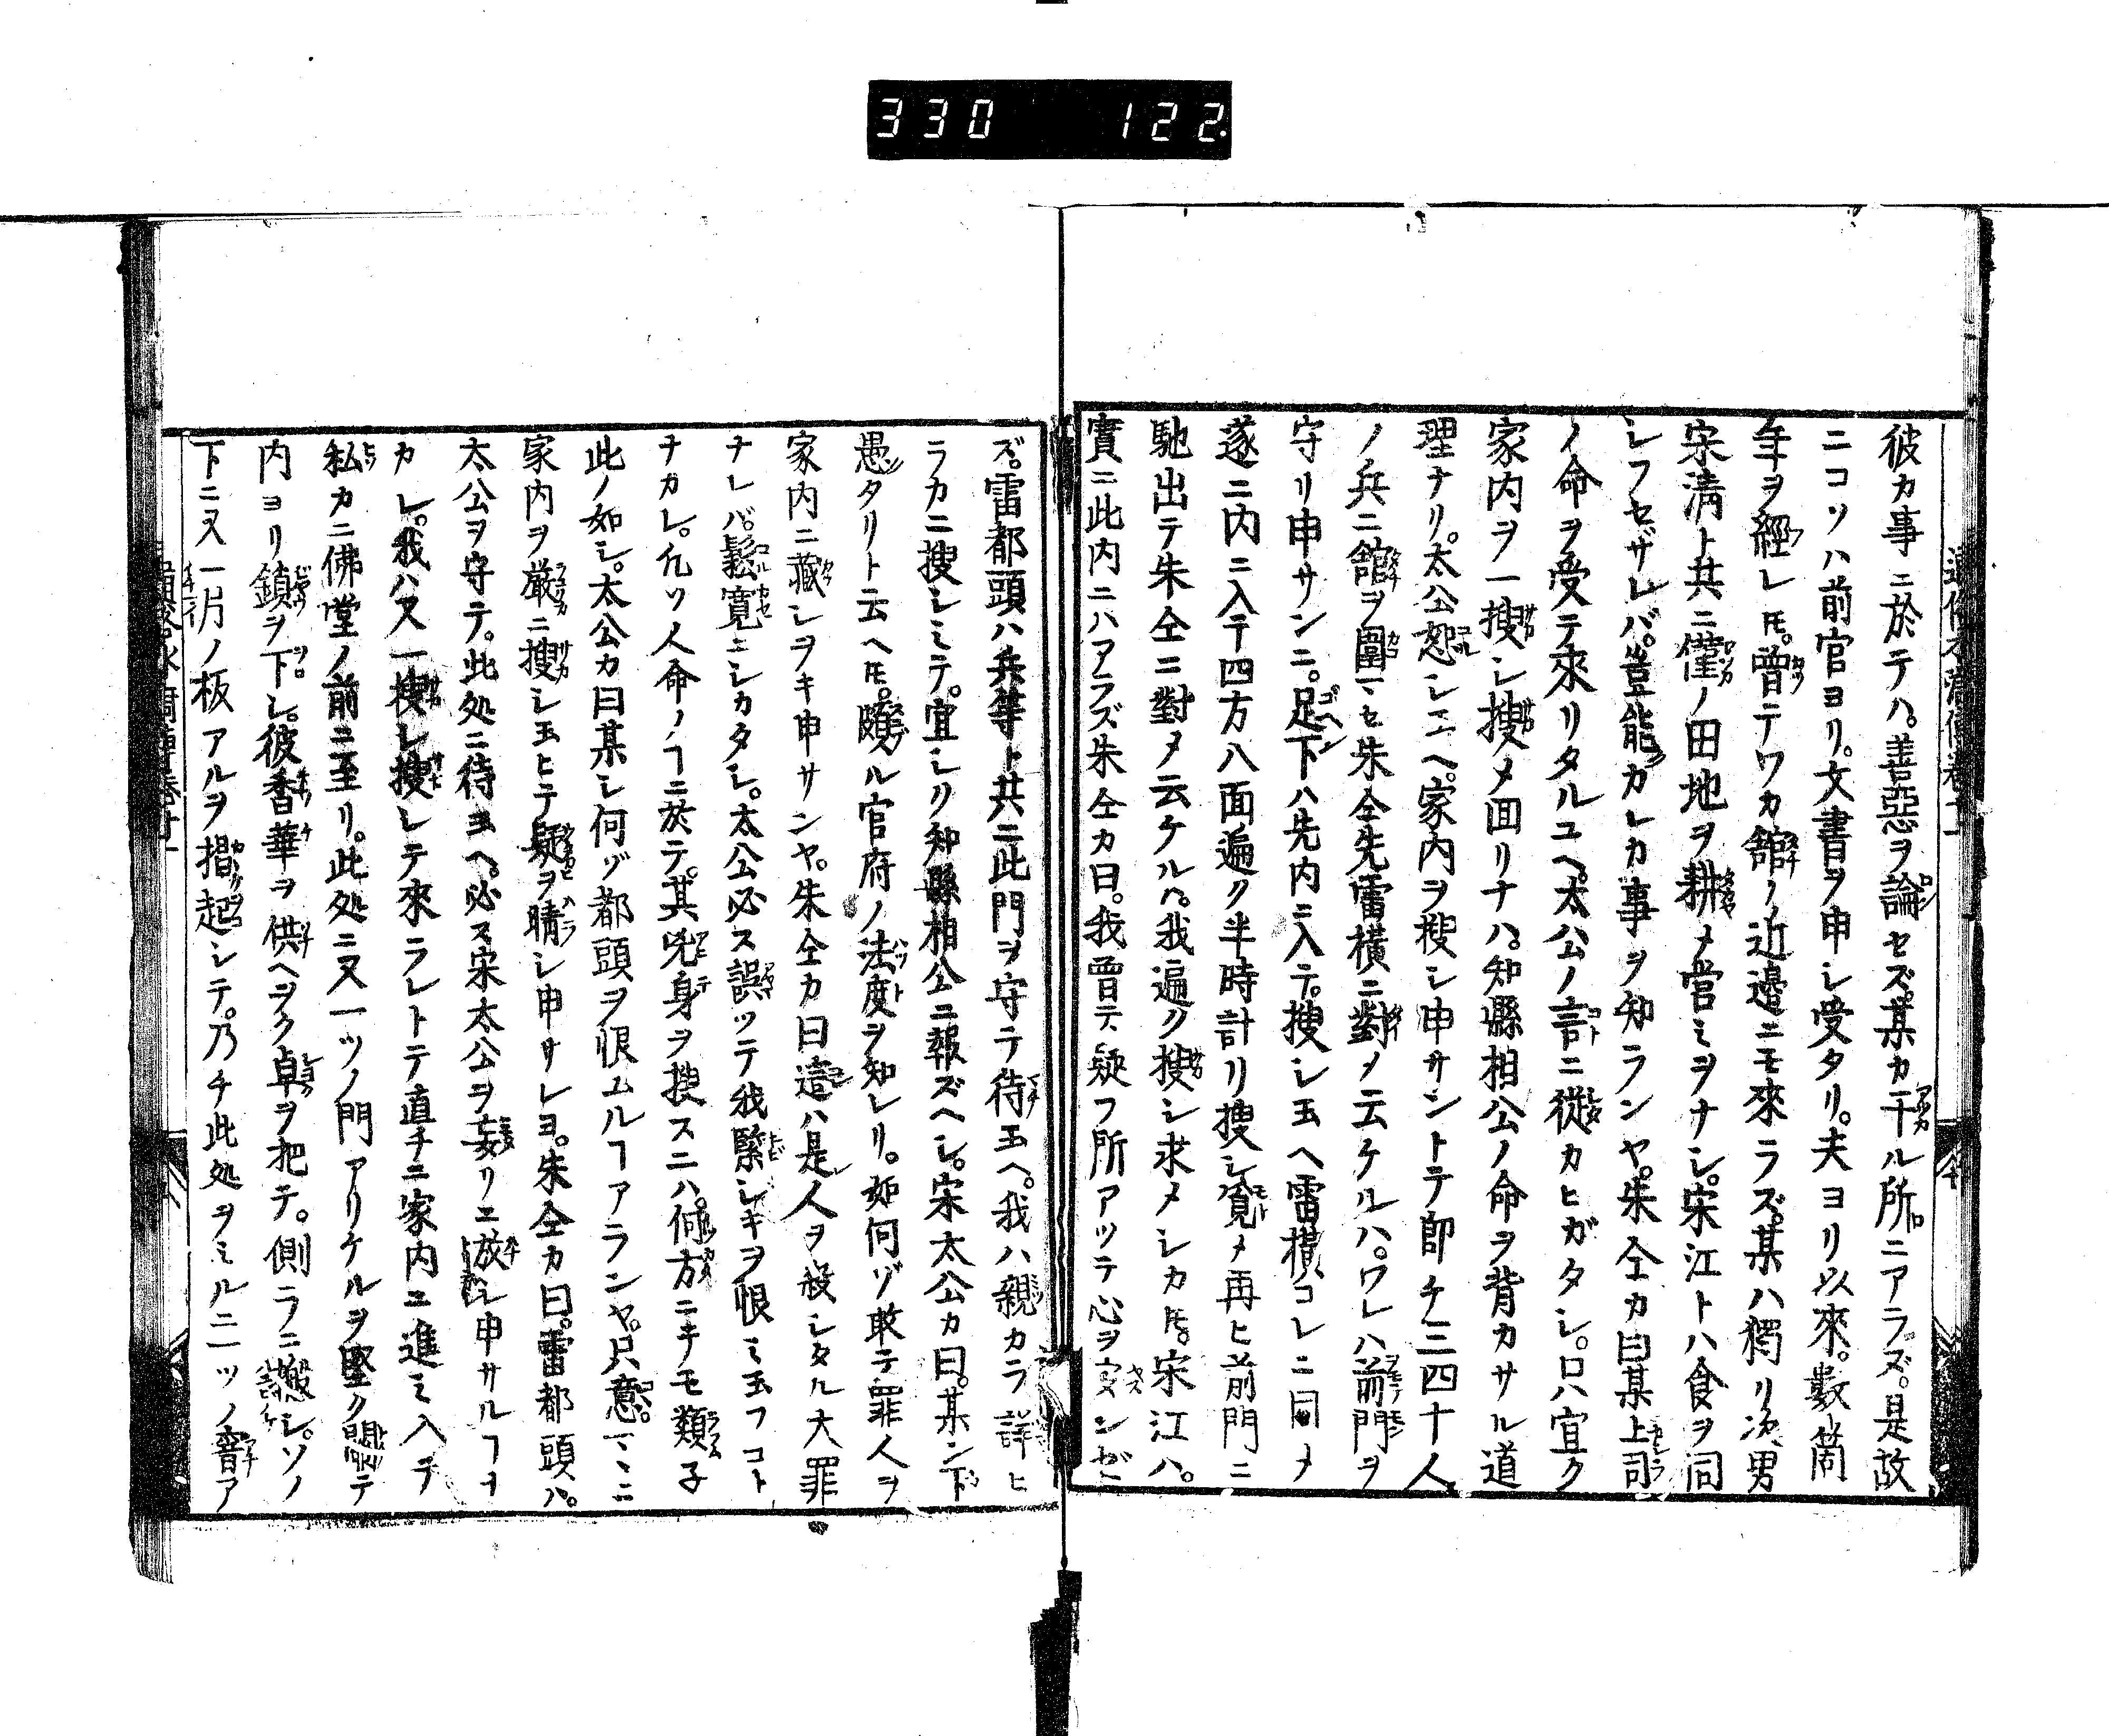 330 122.
彼カ事ニ於テハ。善惡ヲ論セズ。某カ干ル所ニアラズ。是故
ニコソハ前官ヨリ。文書ヲ申シ受タリ。夫ヨリ以來。數箇
年ヲ經レ𪜈。曾テワカ舘ノ近邉ニモ來ラズ。某ハ獨リ次男
宋淸ト共ニ僅ノ田地ヲ耕メ営ミヲナシ。宋江トハ食ヲ同
シフセザレバ。豈能カレカ事ヲ知ランヤ。朱仝カ曰某上司
ノ命ヲ受テ來リタルユヘ。太公ノ言ニ從カヒガタシ。只宜ク
家内ヲ一搜シ搜メ囬リナハ。知縣相公ノ命ヲ背カサル道
理ナリ。太公恕シエヘ。家内ヲ搜シ申サントテ即チ三四十人
ノ兵ニ舘ヲ圍マセ朱仝先雷横ニ對メ云ケルハ。ワレハ前門ヲ
守リ申サンニ。足下ハ先内ニ入テ。搜シ玉ヘ雷横コレニ同メ
遂ニ内ニ入テ四方八面遍ク半時計リ搜シ覓メ再ヒ前門ニ
馳出テ朱仝ニ對メ云ケルハ。我遍ク搜シ求メシカ𪜈。宋江ハ。
實ニ此内ニハアラズ朱仝カ曰。我曽テ疑フ所アツテ心ヲ安ンゼ
ズ。雷都頭ハ兵等ト共ニ此門ヲ守テ待玉ヘ。我ハ親カラ詳ヒ
ラカニ搜シミテ。宜シク知縣相公ニ報ズヘシ。宋太公カ曰。某ン下
愚タリト云ヘ𪜈。頗ル官府ノ法度ヲ知レリ。如何ゾ敢テ罪人ヲ
家内ニ藏シヲキ申サンヤ。朱仝カ曰這ハ是人ヲ殺シタル大罪
ナレバ。鬆寛ニシカタシ。太公必ス誤ツテ我緊シキヲ恨ミ玉フコト
ナカレ。凡ソ人命ノヿニ於テ。其兇身ヲ搜スニハ。何方ニキモ類子
此ノ如シ。太公カ曰某シ何ゾ都頭ヲ恨ムルヿアランヤ。只意マヽニ
家内ヲ厳ニ搜シ玉ヒテ疑ヲ晴シ申サレヨ。朱仝カ曰。雷都頭ハ。
太公ヲ守テ。此処ニ待ヨヘ。必ス宋太公ヲ妄リニ放シ申サルヿヲ
カレ。我ハ又一搜シ搜シテ來ラレトテ直チニ家内ニ進ミ入テ
私カニ佛堂ノ前ニ至リ。此処ニ又一ツノ門アリケルヲ堅ク閉テ
内ヨリ鎖ヲ下シ。彼香華ヲ供ヘヲク卓ヲ把テ。側ラニ搬シ。ソノ
下ニ又一片ノ板アルヲ揩起シテ。乃チ此処ヲミルニ一ツノ響ア